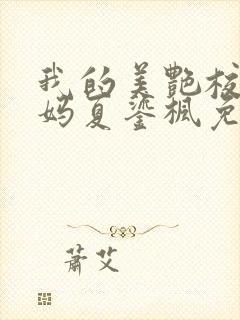 我的美艷校
妈夏鎏枫免
蕭艾